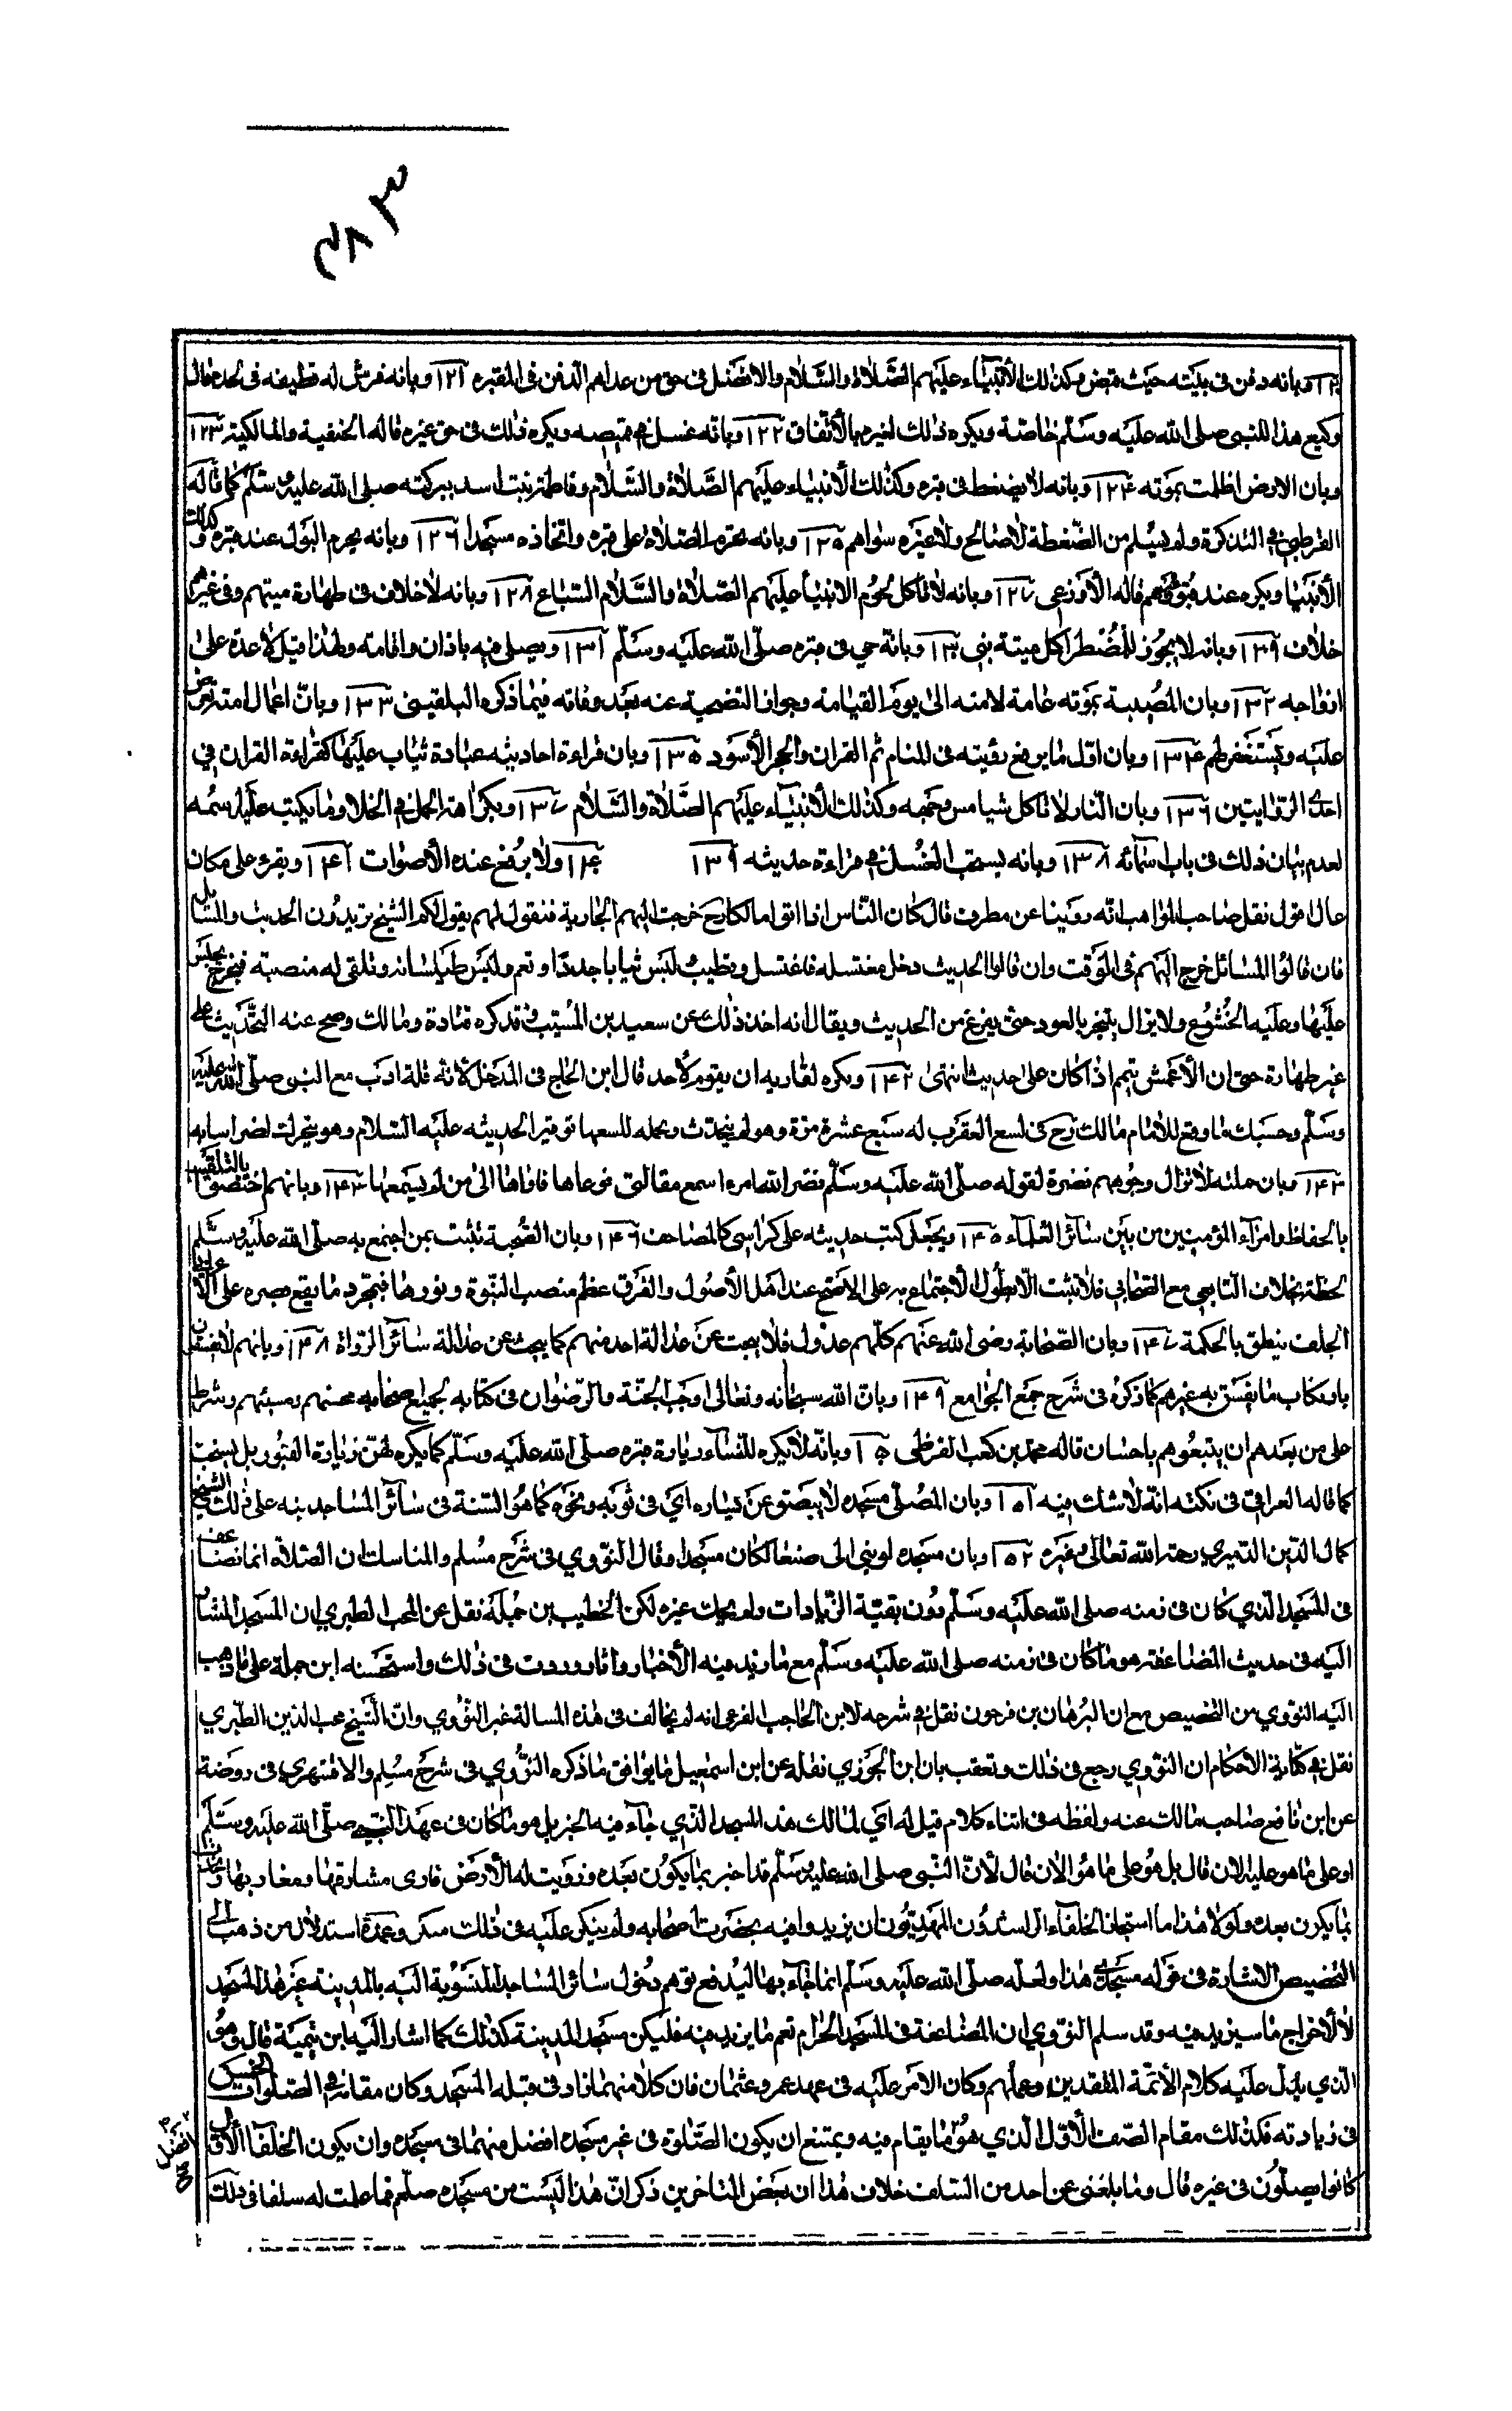 ٤٨٣
١٢٠ وبانه دفن فى بيته حيث قبض وكذلك الأنبيآء عليهم الصَّلاة والسَّلام والافضل فى حق من عداهم الدّفن فى المقبره ١٢١ وبانه فرش له قطيفه فى لحده قال
وكيع هذا للنبى صلى الله عليه وسَلّم خاصّة ويكره ذلك لغيره بالأتفاق ١٢٢ وبانّه غسل فى قميصه ويكره ذلك فى حق غيره قاله الحنفية والمالكية ١٢٣
وبان الارض اظلمت بموته ١٢٤ وبانه لا يضغط فى قبره وكذلك الأنبياء عليهم الصَّلاة والسَّلام وفاطمة بنت اسد ببركته صلى الله عليه وسَلّم كما قاله
القرطبى فى التذكرة ولم يسلم من الضّغطة لا صالح ولا غيره سواهم ١٢٥ وبانه تحرم الصّلاة على قبره واتخاذه مسجدا ١٢٦ وبانه يحرم البول عند قبره وكذلك
الأنبيا ويكره عند قبور غيرهم قاله الأوزعى ١٢٧ وبانه لا تاكل لحوم الانبيآ عليهم الصّلاة والسَّلام السّباع ١٢٨ وبانه لا خلاف فى طهارة ميتهم وفى غيرهم
خلاف ١٢٩ وبانه لا يجوز للمُضْطر اكل ميتة نبى ١٣٠ وبانّه حي فى قبره صلّى الله عليه وسَلّم ١٣١ ويصلى فيه باذان واقامة ولهذا قيل لا عدة على
ازواجه ١٣٢ وبان المُصيبة بموته عامة لامته الى يوم القيامة وجواز التضحية عنه بعد وفاته فيما ذكره البلقينى ١٣٣ وبانّ اعمال امته تعرض
عليه ويستغفر لهم ١٣٤ وبان اوّل ما يرفع رؤيته فى المنام ثم القران والحجر الأسود ١٣٥ وبان قراءة احاديثه عبادة يثاب عليها كقراءة القران في
احدى الروايتين ١٣٦ وبان النّار لا تاكل شيا مس وجهه وكذلك الأنبيآء عليهم الصَّلاة والسَّلام ١٣٧ وبكراهة الحمل فى الخلا وما يكتب عليه اسمه
لعدم بيان ذلك فى باب اسمائه ١٣٨ وبانه يستحب الغسل فى قراءة حديثه ١٣٩ ١٤٠ ولا يرفع عنده الأصوات ١٤١ ويقرء على مكان
عال اقول نقل صاحب المواهب انّه روينا عن مطرف قال كان النّاس اذا اتوا مالكا رح خرجت اليهم الجارية فتقول لهم يقول لكم الشيخ تريدون الحديث والمسَائل
فان قالوا المسَائل خرج اليهم فى الوقت وان قالوا الحديث دخل مغتسله فاغتسل وتطيب ولبس ثيابا جددًا وتعم ولبس طيلسانه وتلقى له منصبته فيخرج يجلس
عليها وعليه الخشوع ولا يزال يتبخر بالعود حتى يفرغ من الحديث ويقال انه اخذ ذلك عن سعيد بن المُسيّب وقد كره قتادة ومالك وصح عنه التحديث على
غير طهارة حتى ان الأعمش يتيمم اذا كان على حديث انتهى ١٤٢ ويكره لقاريه ان يقوم لأحد قال ابن الحاج فى المدخل لأنه قلة ادب مع النبى صلّى الله عليه
وسَلّم وحسبك ما وقع للأمام مالك رح فى لسع العقرب له سبع عشرة مرّة وهو لم يتحدث ويحمله للسعها توقيرا لحديثه عليه السّلام وهو يتحرك لضر اسابه
١٤٣ وبان حملته لا تزال وجوههم نضرة لقوله صلّى الله عليه وسَلّم نضر الله امره اسمع مقالتى فوعاها فاداها الى من لم يسمعها ١٤٤ وبانهم اختصوا بالتلقيب
بالحفاظ وامرآء المؤمنين من بين سائر العلمآء ١٤٥ ويجعل كتب حديثه على كراسى كالمصاحف ١٤٦ وبان الصّحبة تثبت بمن اجتمع به صلّى الله عليه وسَلّم
لحظة بخلاف التابعى مع الصّحابي فلا تثبت الّا بطول الأجتماع به على الاصّح عند اهل الأصول والفرق عظم منصب النبّوة ونورها فبمجرد ما يقع بصره على الأعرابى
الجلف ينطق بالحكمة ١٤٧ وبان الصّحابة رضى الله عنهم كلّهم عدُول فلا يبحث عن عدالة احد منهم كما يبحث عن عدالة سائر الرّواة ١٤٨ وبانهم لا يفسقون
بارتكاب ما يفسّق به غيرهم كما ذكره فى شرح جمع الجوامع ١٤٩ وبانّ الله سبحانه وتعالى اوجب الجنّة والرّضوان فى كتابه لجميع صحابه محسنهم ومسئهم وشرط
على من بعدهم ان يتبعوهم باحسان قاله محمّد بن كعب القرظى ١٥٠ وبانّه لا يكره للنّسآء زيارة قبره صلّى الله عليه وسَلّم كما يكره لهنّ زيارة القبور بل يستحب
كما قاله العراقى فى نكته انّه لا شك فيه ١٥١ وبان المُصلّى بمسجده لا يبصق عن يساره اى فى ثوبه ونحوه كما هو السّنة فى سائر المساجد نبه على ذلك الشيخ
كمال الدّين الدّميري رحمة الله تعالى وغيره ١٥٢ وبان مسجده لو بني الى صنعا لكان مسجدا وقال النّووي فى شرح مُسلم والمناسك ان الصّلاة انما تضاعف
فى المسجد الّذي كان فى زمنه صلى الله عليه وسَلّم دون بقيّة الزّيادات ولم يحك غيره لكن الخطيب بن جُملة نقل عن المحب الطبري ان المسجد المشار
اليه فى حديث المضاعفة هو ما كان فى زمنه صلى الله عليه وسَلّم مع ما زيد فيه الأخبار واثار وردت فى ذلك واستحسنه ابن جملة على ما ذهب
اليه النّووي من التخصيص مع ان البُرهان بن فرحون نقل فى شرحه لابن الحاجب الفرعى انه لم يخالف فى هذه المسالة غير النّووي وانّ الشيخ محب الدين الطّبري
نقل فى كتابه الاحكام ان النّووي رجع فى ذلك وتعقب بان ابن الجوزي نقله عن ابن اسمعيل ما يوافق ما ذكره النّووي فى شرح مُسلم والاقشهري فى روضة
عن ابن نافع صاحب مالك عنه ولفظه فى اثناء كلام قيل له اي لمالك هذا المسجد الّذي جآء فيه الخبر بل هو ما كان فى عهد النبّى صلّى الله عليه وسَلّم
او على ما هو عليه الان قال بل هو على ما هو الان قال لأنّ النّبى صلى الله عليه وسَلّم قد اخبر بما يكون بعده وزويت له الأرض فارى مشارقها ومغاربها
بما يكون بعده ولولا هذا ما استجاز الخلفاء الرّاشدون المهديّون ان يزيدوا فيه بحضرت اصحابه ولم ينكر عليه فى ذلك منكر وعمدة استدلال من ذهب الى
التخصيص الاشارة فى قوله مسجدى هذا ولعله صلّى الله عليه وسَلّم انما جآء بها ليدفع توهم دُخول سائر المسَاجد المنسُوبة اليه بالمدينة غير هذا المسجد
لا لأخراج ما سيزيد فيه وقد سلم النّووي ان المضاعفة فى المسجد الحرام تعم ما يزيد فيه فليكن مسجد المدينة كذلك كما اشار اليه ابن تيمية قال وهو
الّذي يدّل عليه كلام الأئمّة المتقدمين وعملهم وكان الامر عليه فى عهد عمر وعثمان فان كلا منهما زاد فى قبلة المسجد وكان مقامه فى الصّلوات الخمس
فى زيادته فكذلك مقام الصّف الأوّل الّذي هو ما يقام فيه ويمتنع ان يكون الصّلوة فى غير مسجده افضل منهما فى مسجده وان يكون الخلفآ الأول
كانوا يصلّون فى غيره قال وما بلغنى عن احد من السّلف خلاف هذا ان بعض المتاخرين ذكر انّ هذا ليست من مسجده صلعم فما علمت له سلفا فى ذلك